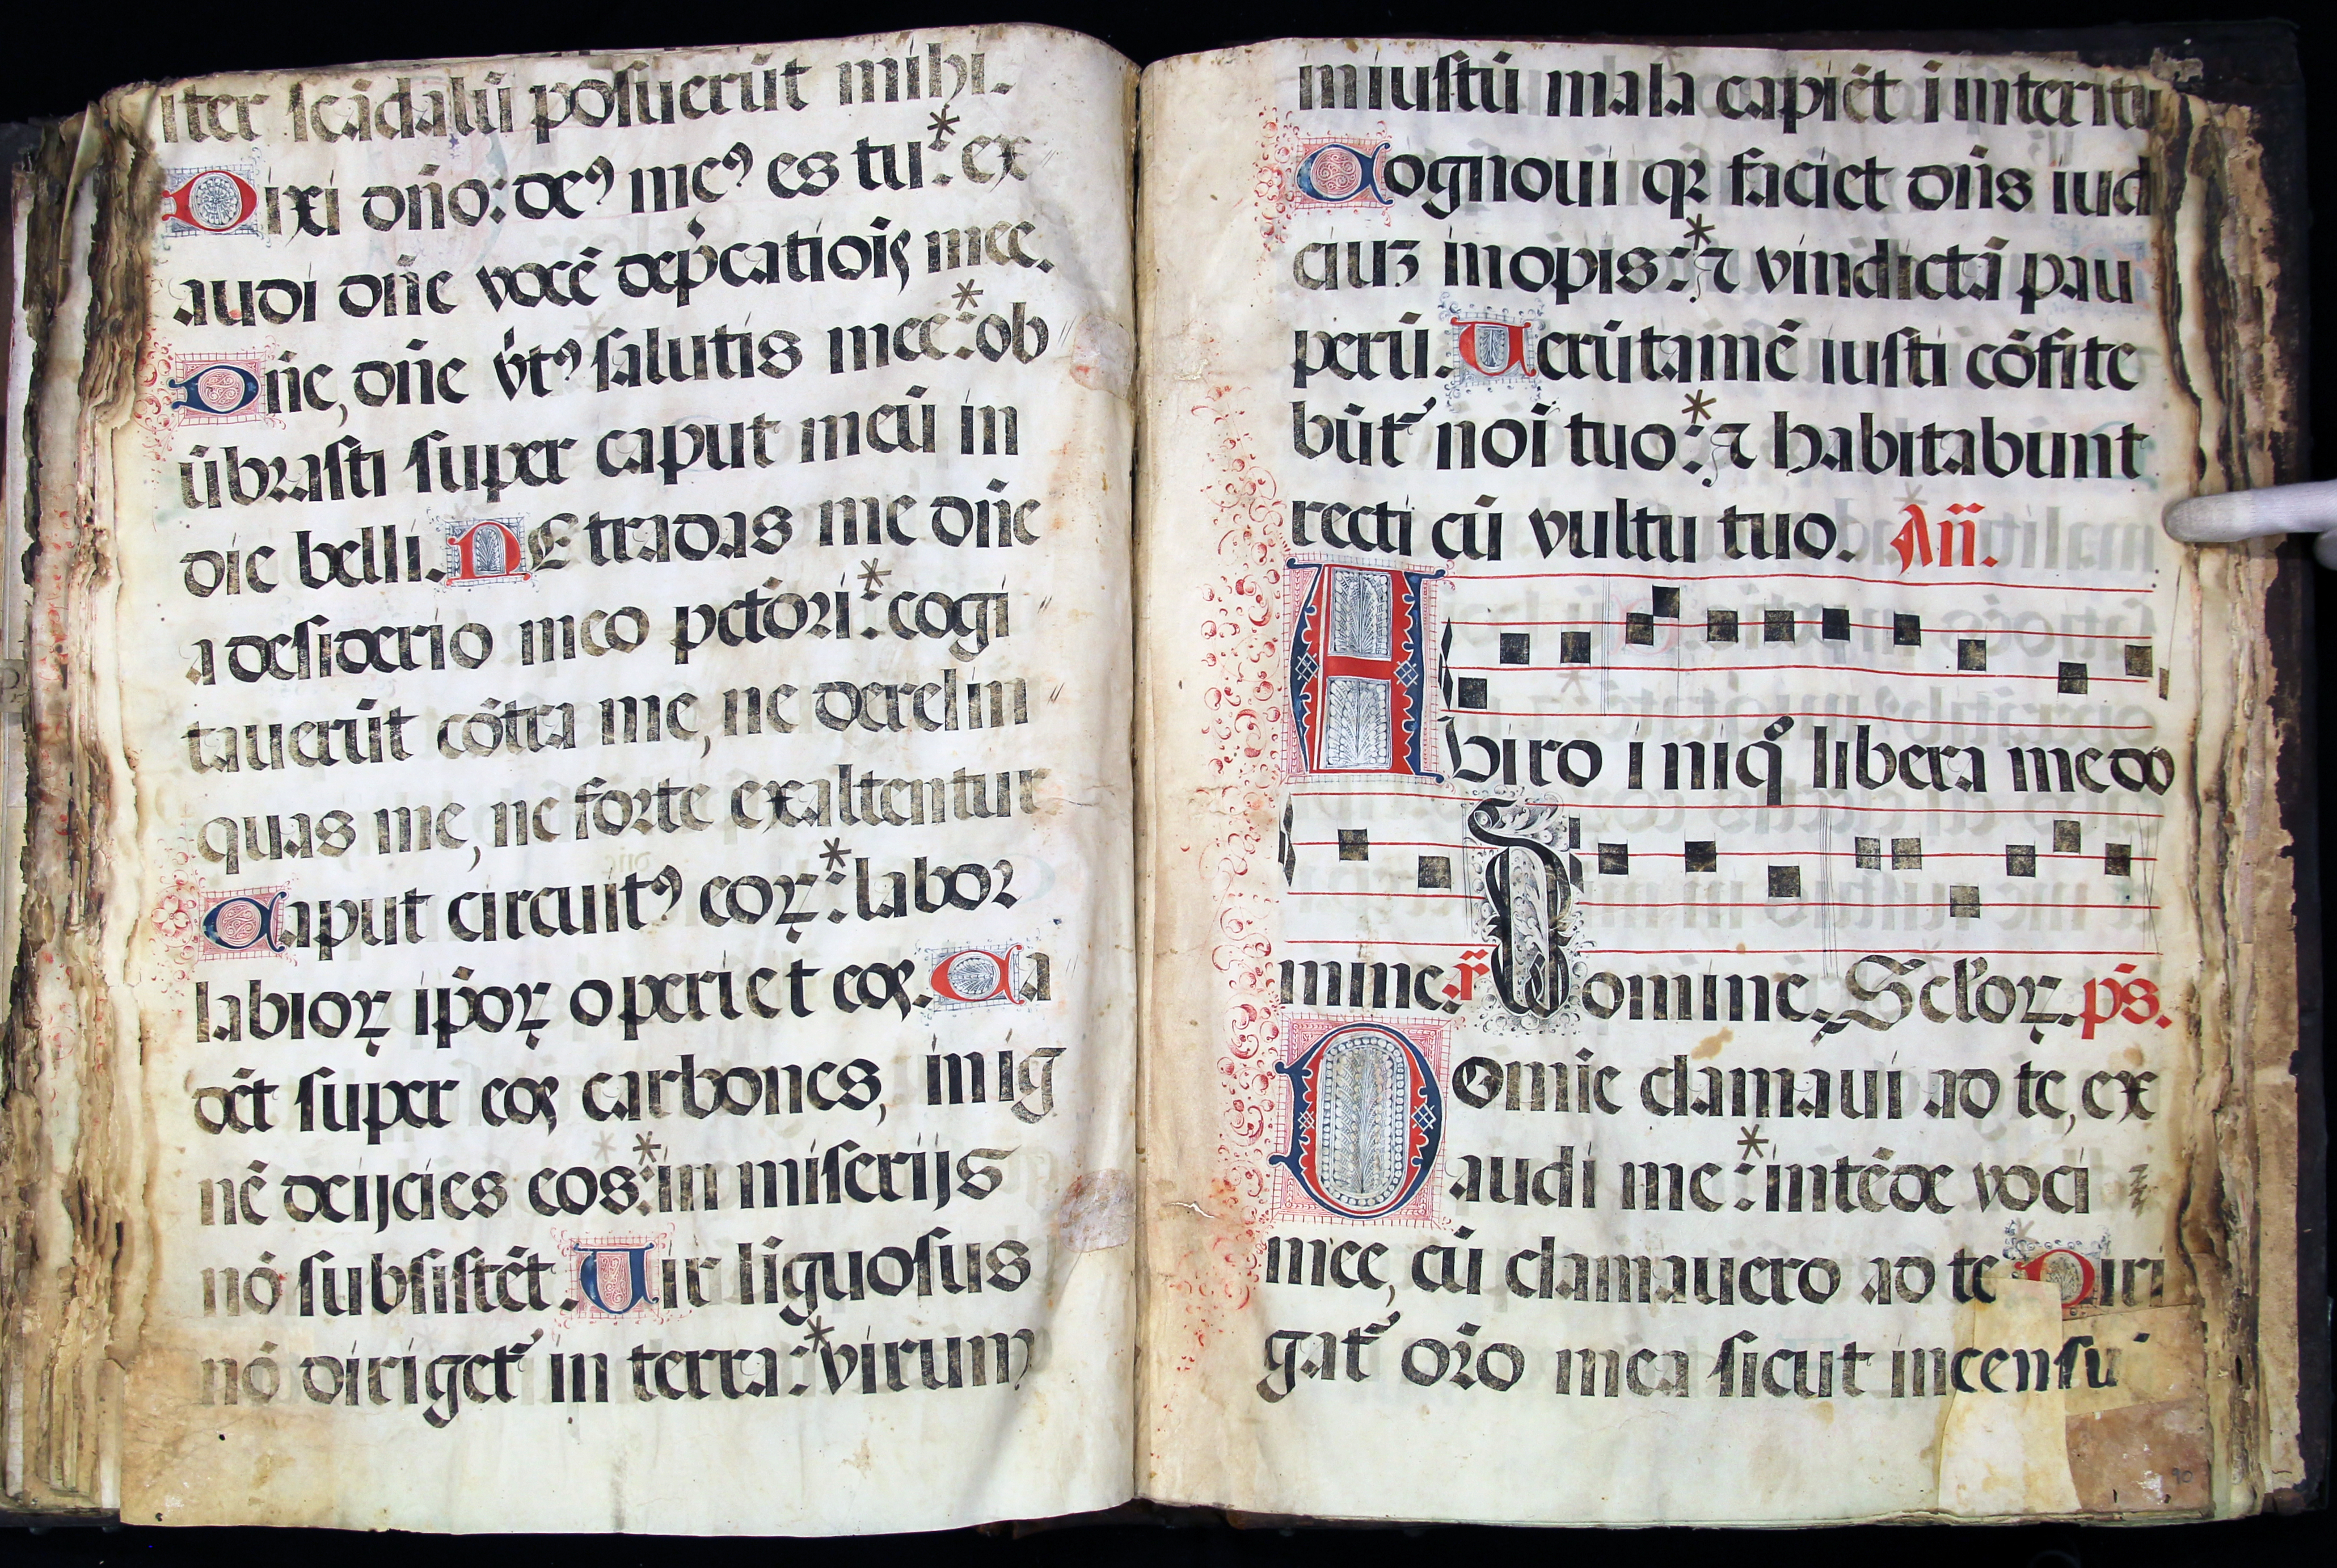 iter scãdalũ posuerũt mihi.
Dixi dño: deꝰ meꝰ es tu:* ex
audi dñe vocẽ dep̃catiois mee.
Dñe, dñe v̓tꝰ salutis mee:* ob
ũbrasti super caput meũ in
die belli. NE tradas me dñe
a desiderio meo pctõri:* cogi
tauerũt cõtra me, ne derelin
quas me, ne forte exaltentur
Caput circuitꝰ coꝝ:* labor
labioꝝ ip̃oꝝ operiet eos. Ca
dẽt super eos carbones, in ig
nẽ deijcies eos:* in miserijs
nõ subsistẽt. Uir liguosus
nõ diriget̃ in terra:* virum
iniustũ mala capiẽt ĩ interitu
Cognoui qꝛ faciet dñs iud
ciuʒ inopis:* ⁊ vindictã pau
perũ. Uerũtamẽ iusti cõfite
bũt̃ noĩ tuo:* ⁊ habitabunt
recti cũ vultu tuo. Añ.
A biro iniq̊ libera me do
mine. r̃ Domine. Sctoꝝ. ps̃.
Domie clamaui ad te, ex
audi me:* intẽde voci
mee, cũ clamauero ad te Diri
gat̃ orõ mea sicut incensũ
90